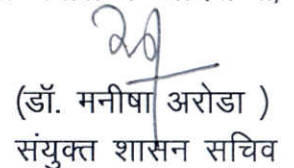 (डॉ. मनीषा अरोडा )
संयुक्त शासन सचिव